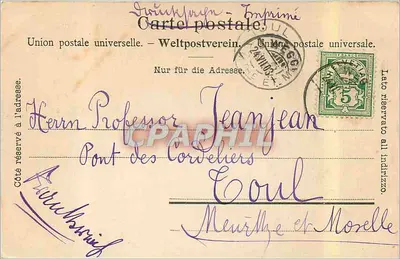 Drucksache - Imprimé
Carte postale.
Union postale universelle. - Weltpostverein. - Unione postale universale.
Nur für die Adresse.
Côté réservé à l'adresse.
Lato riservato all indirizzo.
WEGGIS
5
Herrn Professor Jeanjean
CPARHIL
Pont des Cordeliers
Toul
Meurthe et Moselle